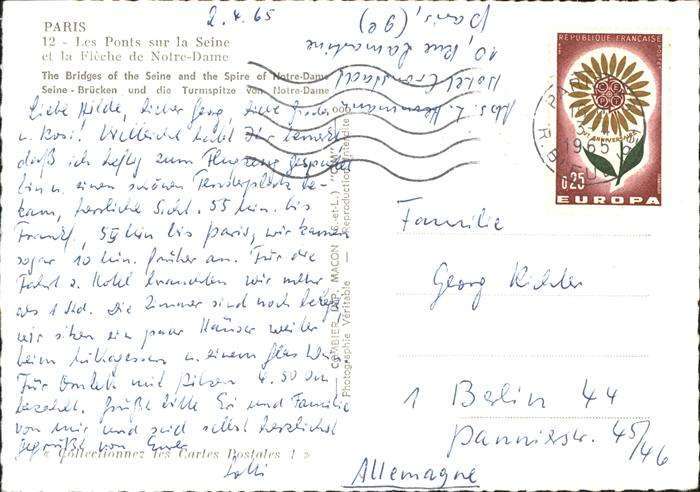 PARIS
12 - Les Ponts sur la Seine
et la Flèche de Notre-Dame
The Bridges of the Seine and the Spire of Notre-Dame
Seine - Brücken und die Turmspitze von Notre-Dame
2.4.65
Abs. L. Herrmann
Hotel
10, Rue Lamartine
Paris, (9e)
Liebe Hilde, lieber Georg, liebe Frieder
u. Rosi! Vielleicht habt Ihr bemerkt
daß ich heftig zum Flugzeug
bin u. einen schönen Fensterplatz be-
kam, herrliche Sicht. 55 Min. bis
Frankf, 55 Min bis Paris, wir kamen
sogar 10 Min. früher an. Für die
Fahrt z. Hotel brauchten wir mehr
als 1 Std. Die Zimmer sind noch belegt,
wir sitzen ein paar Häuser weiter
beim Mittagessen u. einem Glas Wein
Für Omelett mit Pilzen 4.50 DM
bezahlt. Grüßt bitte Eri und Familie
von mir und seid selbst herzlichst
gegrüßt von Eurer
Lotti
« Collectionnez les Cartes Postales ! »
COMBIER IMP. MACON (S.-et-L.) "CIM"
Photographie Véritable — Reproduction interdite
REPUBLIQUE FRANÇAISE
POSTES
ANNIVERSAIRE
0,25
EUROPA
PARIS
1965
Familie
Georg Richter
1 Berlin 44
Pannierstr. 45/46
Allemagne